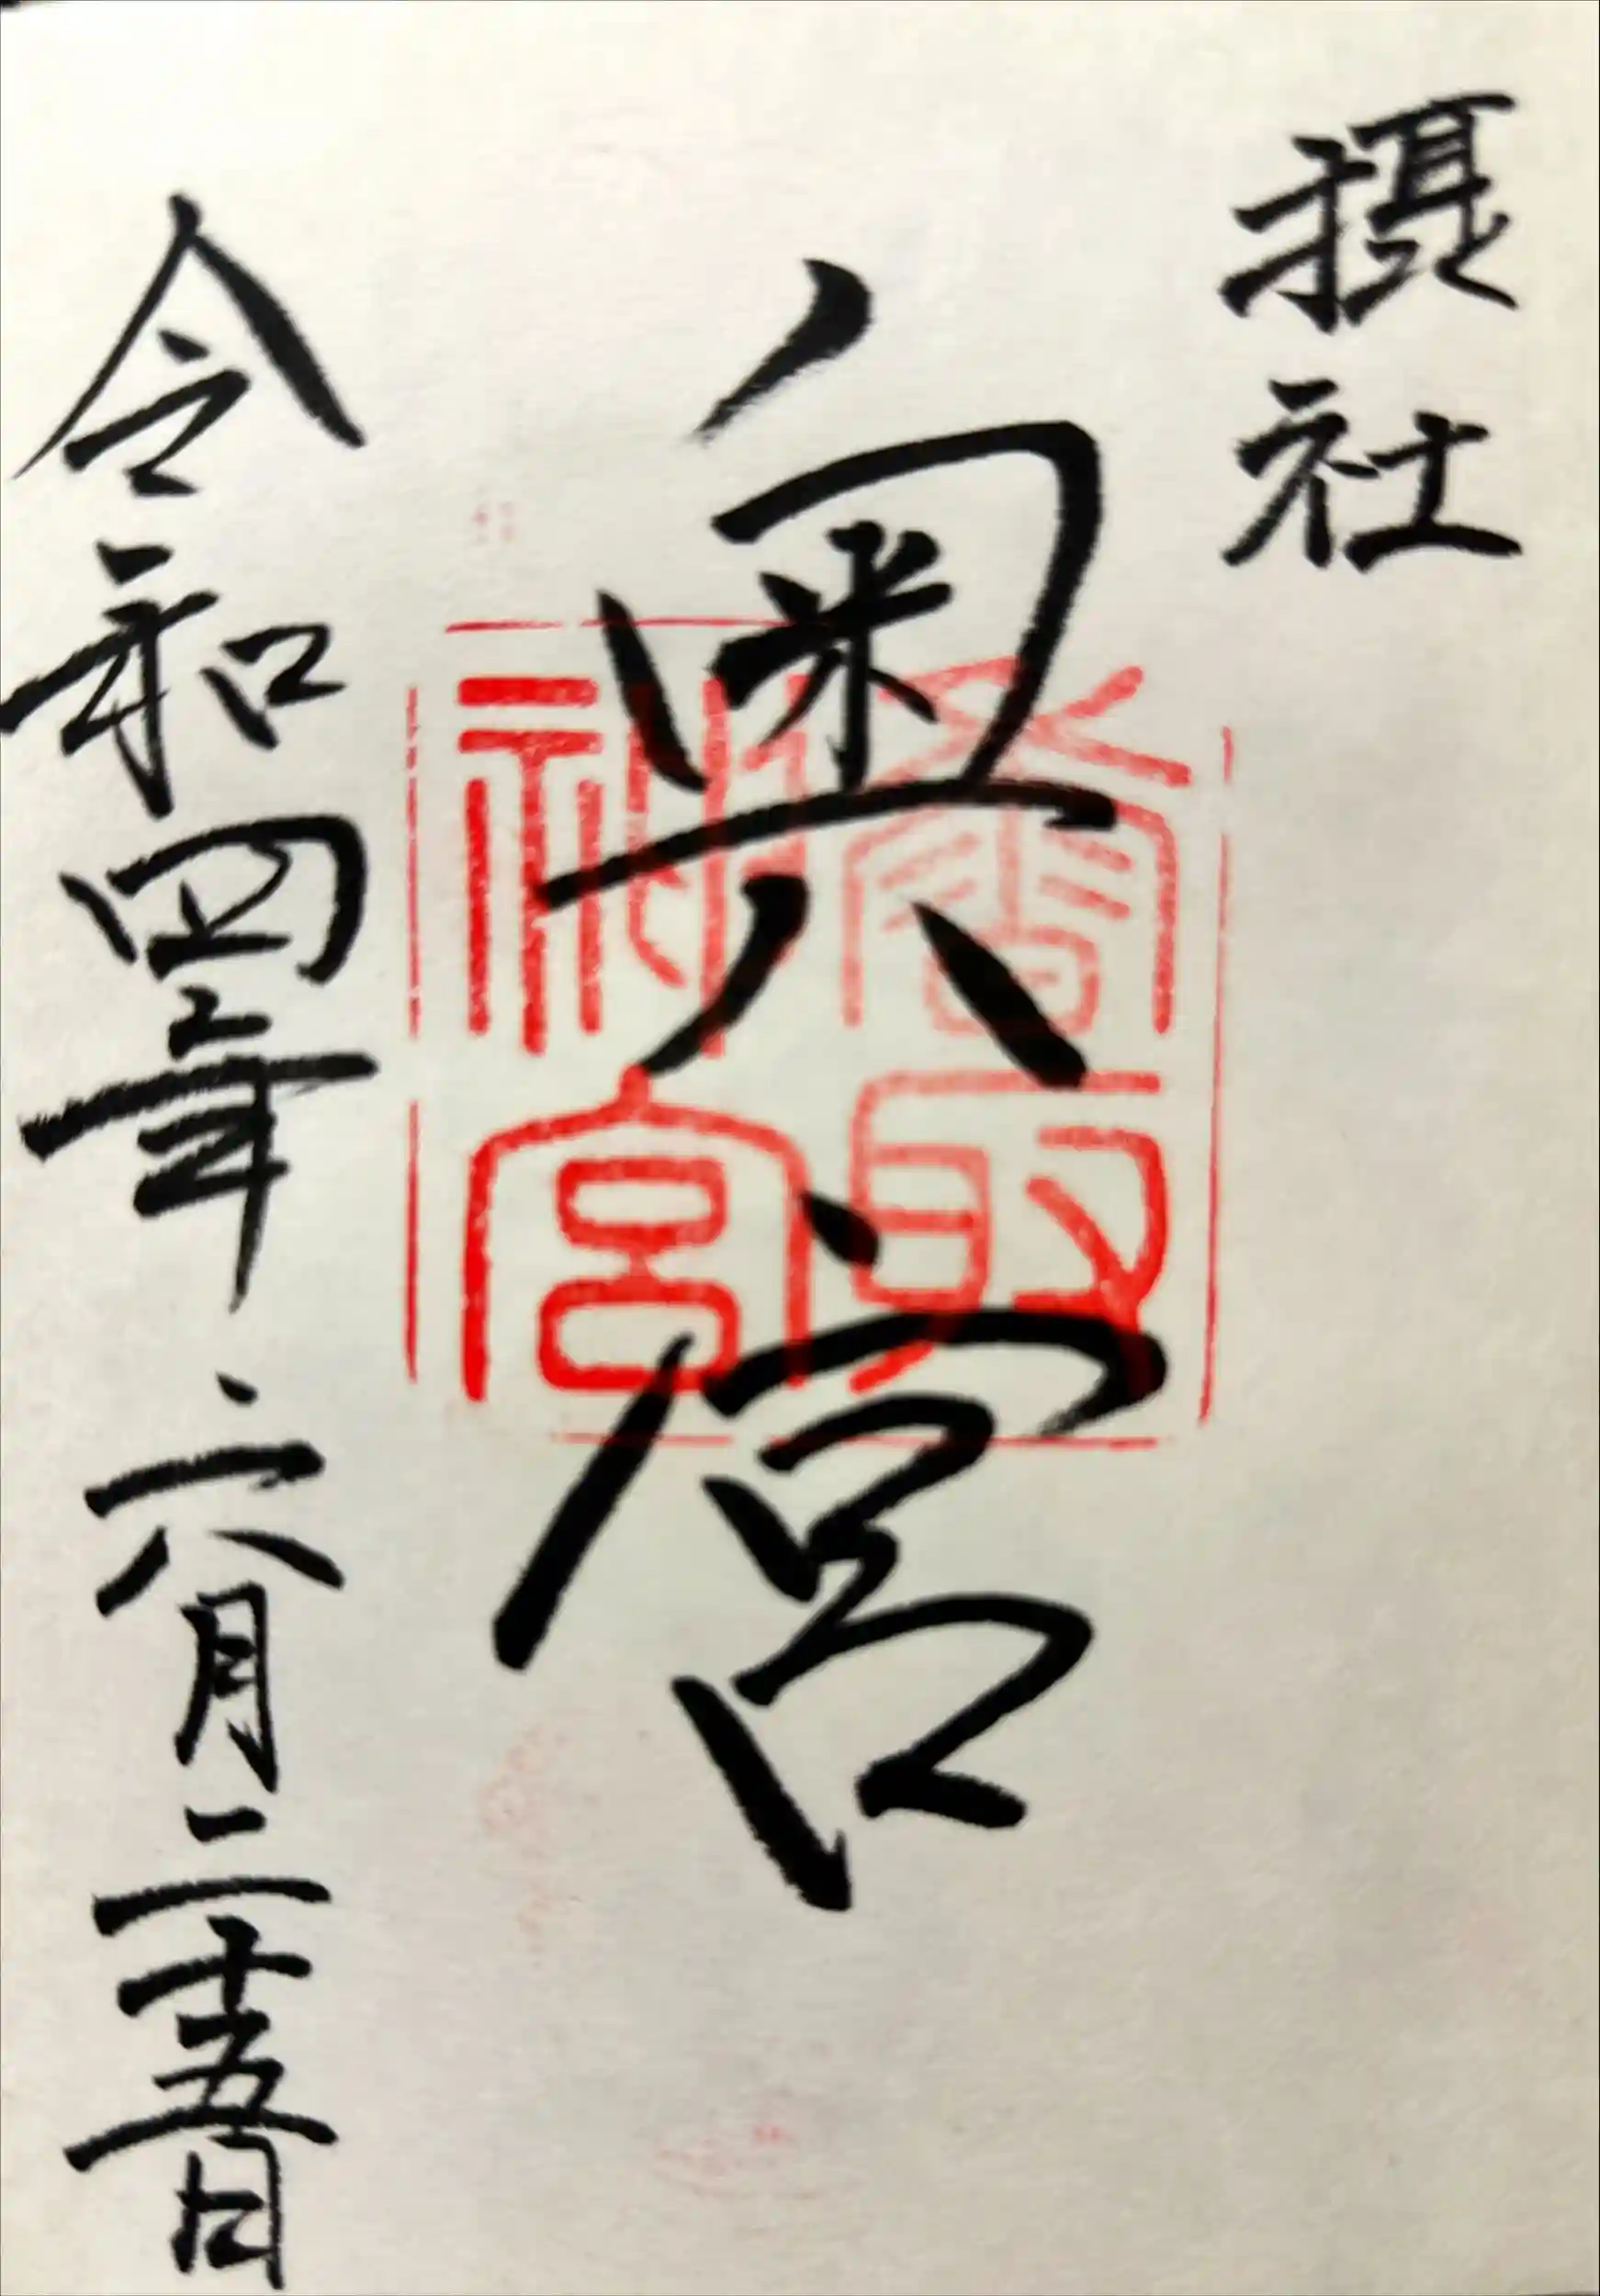 摂社
奥宮
香取
神宮
令和四年 六月二十五日